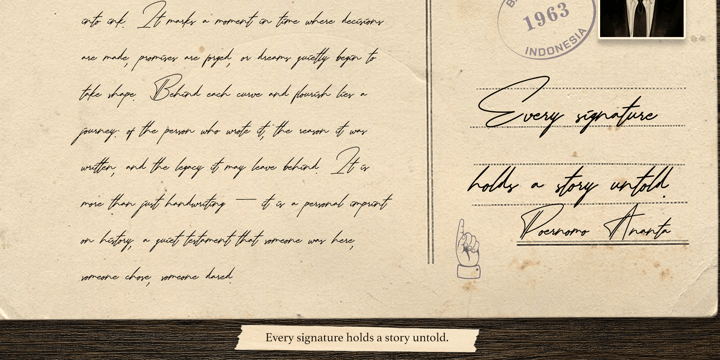 onto ink. It marks a moment in time where decisions
are made, promises are forged, or dreams quietly begin to
take shape. Behind each curve and flourish lies a
journey: of the person who wrote it, the reason it was
written, and the legacy it may leave behind. It is
more than just handwriting — it is a personal imprint
on history, a quiet testament that someone was here,
someone chose, someone dared.
1963
INDONESIA
Every signature
holds a story untold.
Poernomo Ananta
Every signature holds a story untold.